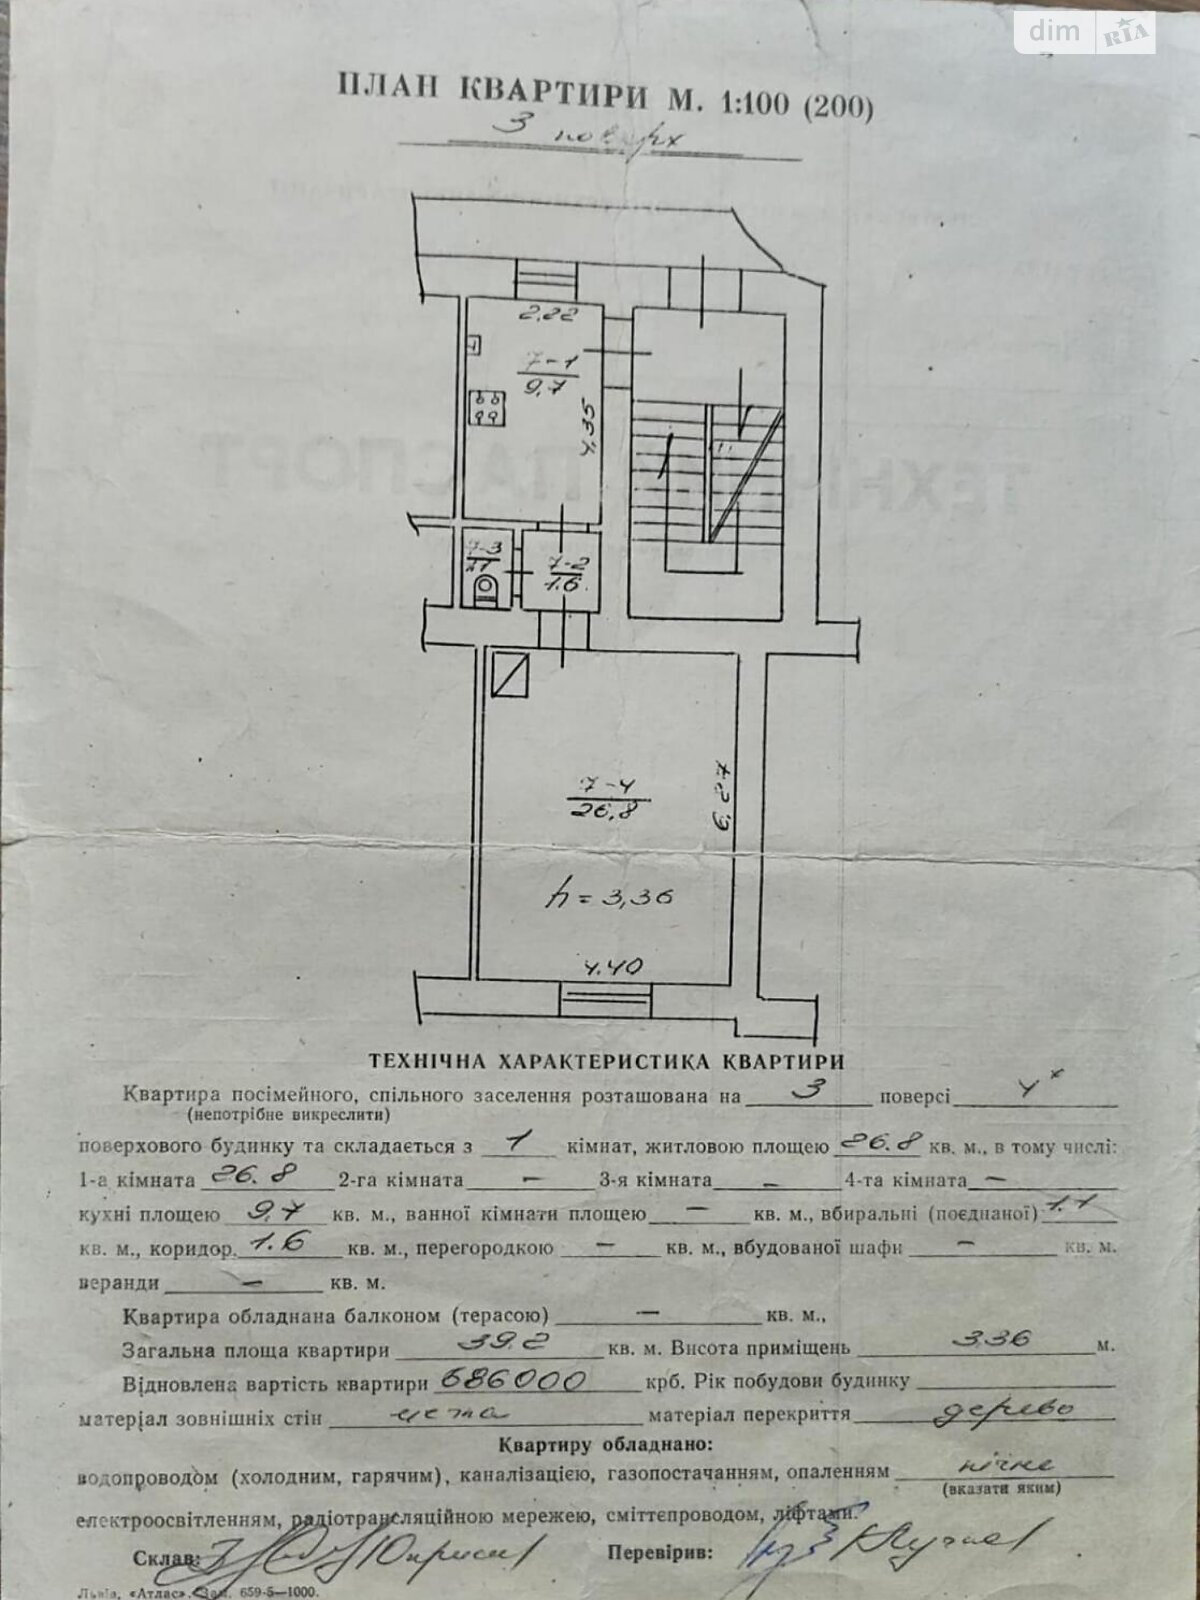 dim RIA
ПЛАН КВАРТИРИ М. 1:100 (200)
3 поверх
2,22
7-1
9,7
4,35
7-3
1.1
7-2
1.6
7-4
26,8
6,27
h = 3,36
4.40
ТЕХНІЧНА ХАРАКТЕРИСТИКА КВАРТИРИ
Квартира посімейного, спільного заселення розташована на 3 поверсі 4х
(непотрібне викреслити)
поверхового будинку та складається з 1 кімнат, житловою площею 26.8 кв. м., в тому числі:
1-а кімната 26.8 2-га кімната — 3-я кімната — 4-та кімната —
кухні площею 9,7 кв. м., ванної кімнати площею — кв. м., вбиральні (поєднаної) 1.1
кв. м., коридор. 1.6 кв. м., перегородкою — кв. м., вбудованої шафи — кв. м.
веранди — кв. м.
Квартира обладнана балконом (терасою) — кв. м.,
Загальна площа квартири 39.2 кв. м. Висота приміщень 3.36 м.
Відновлена вартість квартири 686000 крб. Рік побудови будинку
матеріал зовнішніх стін матеріал перекриття дерево
Квартиру обладнано:
водопроводом (холодним, гарячим), каналізацією, газопостачанням, опаленням пічне
(вказати яким)
електроосвітленням, радіотрансляційною мережею, сміттєпроводом, ліфтами.
Склав: Перевірив:
Львів, «Атлас». Зам. 659-5—1000.